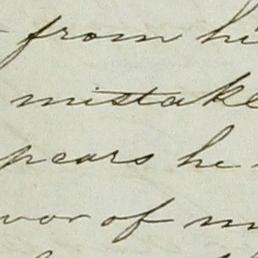 from hi
mistake
pears he
vor of m